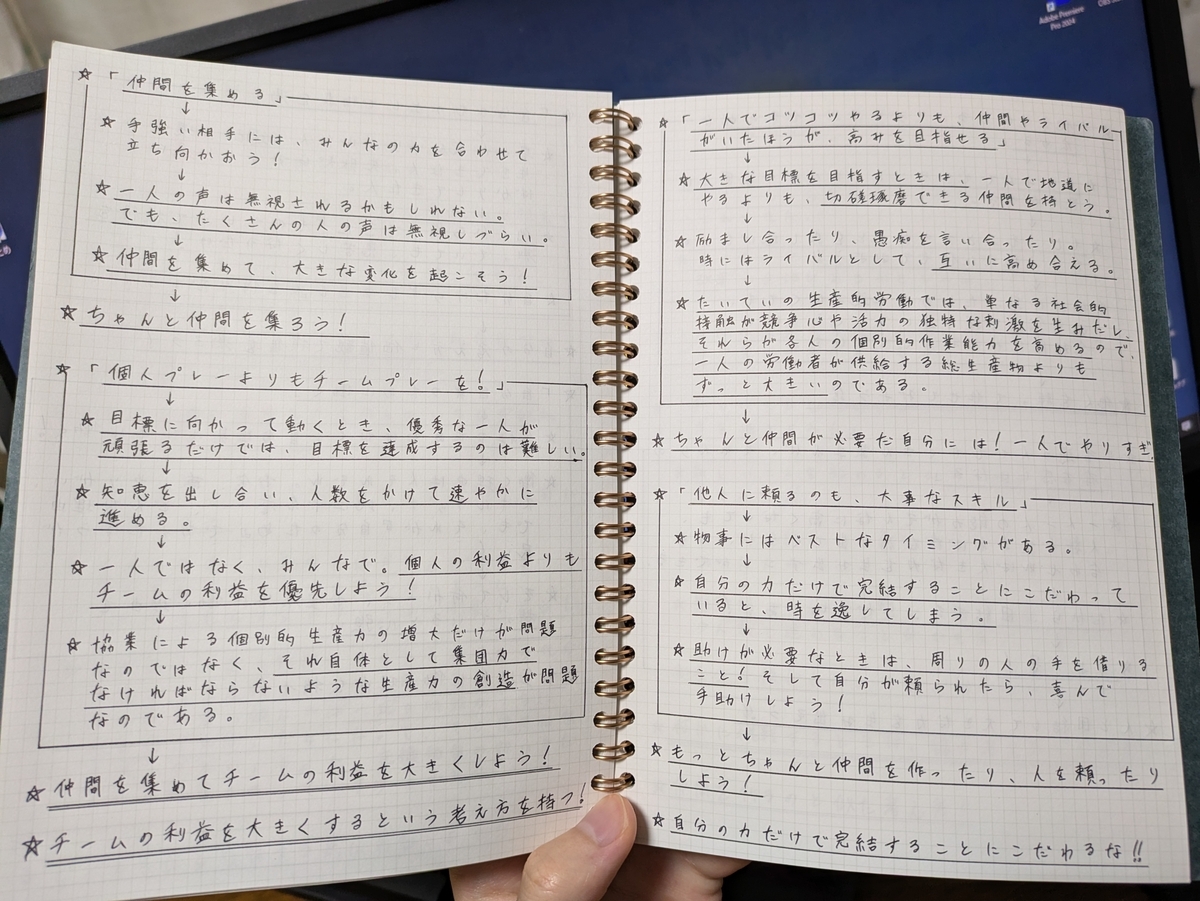 ☆「仲間を集める」
↓
☆ 手強い相手には、みんなの力を合わせて
立ち向かおう!
↓
☆ 一人の声は無視されるかもしれない。
でも、たくさんの人の声は無視しづらい。
↓
☆ 仲間を集めて、大きな変化を起こそう!
↓
☆ ちゃんと仲間を集ろう!
☆「個人プレーよりもチームプレーを!」
↓
☆ 目標に向かって動くとき、優秀な一人が
頑張るだけでは、目標を達成するのは難しい。
↓
☆ 知恵を出し合い、人数をかけて速やかに
進める。
↓
☆ 一人ではなく、みんなで。個人の利益よりも
チームの利益を優先しよう!
↓
☆ 協業による個別的生産力の増大だけが問題
なのではなく、それ自体として集団力で
なければならないような生産力の創造が問題
なのである。
↓
☆ 仲間を集めてチームの利益を大きくしよう!
☆ チームの利益を大きくするという考え方を持つ!
☆「一人でコツコツやるよりも、仲間やライバル
がいたほうが、高みを目指せる」
↓
☆ 大きな目標を目指すときは、一人で地道に
やるよりも、切磋琢磨できる仲間を持とう。
↓
☆ 励まし合ったり、愚痴を言い合ったり。
時にはライバルとして、互いに高め合える。
↓
☆ たいていの生産的労働では、単なる社会的
接触が競争心や活力の独特な刺激を生みだし、
それらが各人の個別的作業能力を高めるので、
一人の労働者が供給する総生産物よりも
ずっと大きいのである。
↓
☆ ちゃんと仲間が必要だ自分には!一人でやりすぎ
☆「他人に頼るのも、大事なスキル」
↓
☆ 物事にはベストなタイミングがある。
↓
☆ 自分の力だけで完結することにこだわって
いると、時を逸してしまう。
↓
☆ 助けが必要なときは、周りの人の手を借りる
こと!そして自分が頼られたら、喜んで
手助けしよう!
↓
☆ もっとちゃんと仲間を作ったり、人を頼ったり
しよう!
☆ 自分の力だけで完結することにこだわるな!!
Adobe Premiere
Pro 2024